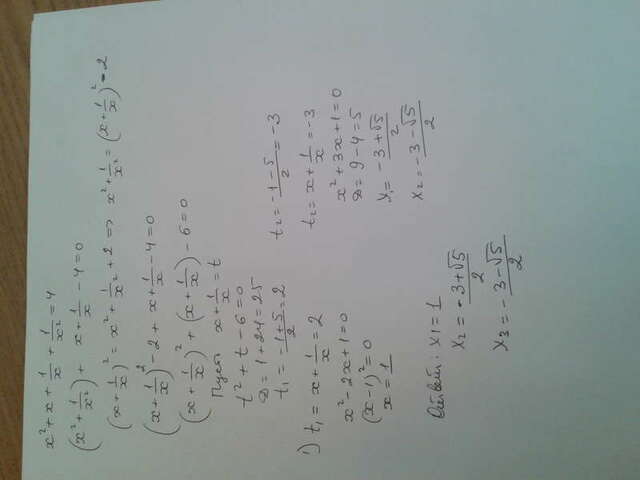 x² + x + 1/x + 1/x² = 4
(x² + 1/x²) + x + 1/x - 4 = 0
(x + 1/x)² = x² + 1/x² + 2 => x² + 1/x² = (x + 1/x)² - 2
(x + 1/x)² - 2 + x + 1/x - 4 = 0
(x + 1/x)² + (x + 1/x) - 6 = 0
Пусть x + 1/x = t
t² + t - 6 = 0
D = 1 + 24 = 25
t₁ = (-1 + 5)/2 = 2
t₂ = (-1 - 5)/2 = -3
1) t₁ = x + 1/x = 2
x² - 2x + 1 = 0
(x - 1)² = 0
x = 1
t₂ = x + 1/x = -3
x² + 3x + 1 = 0
D = 9 - 4 = 5
x₁ = (-3 + √5)/2
x₂ = (-3 - √5)/2
Ответ: x1 = 1
x₂ = (-3 + √5)/2
x₃ = (-3 - √5)/2